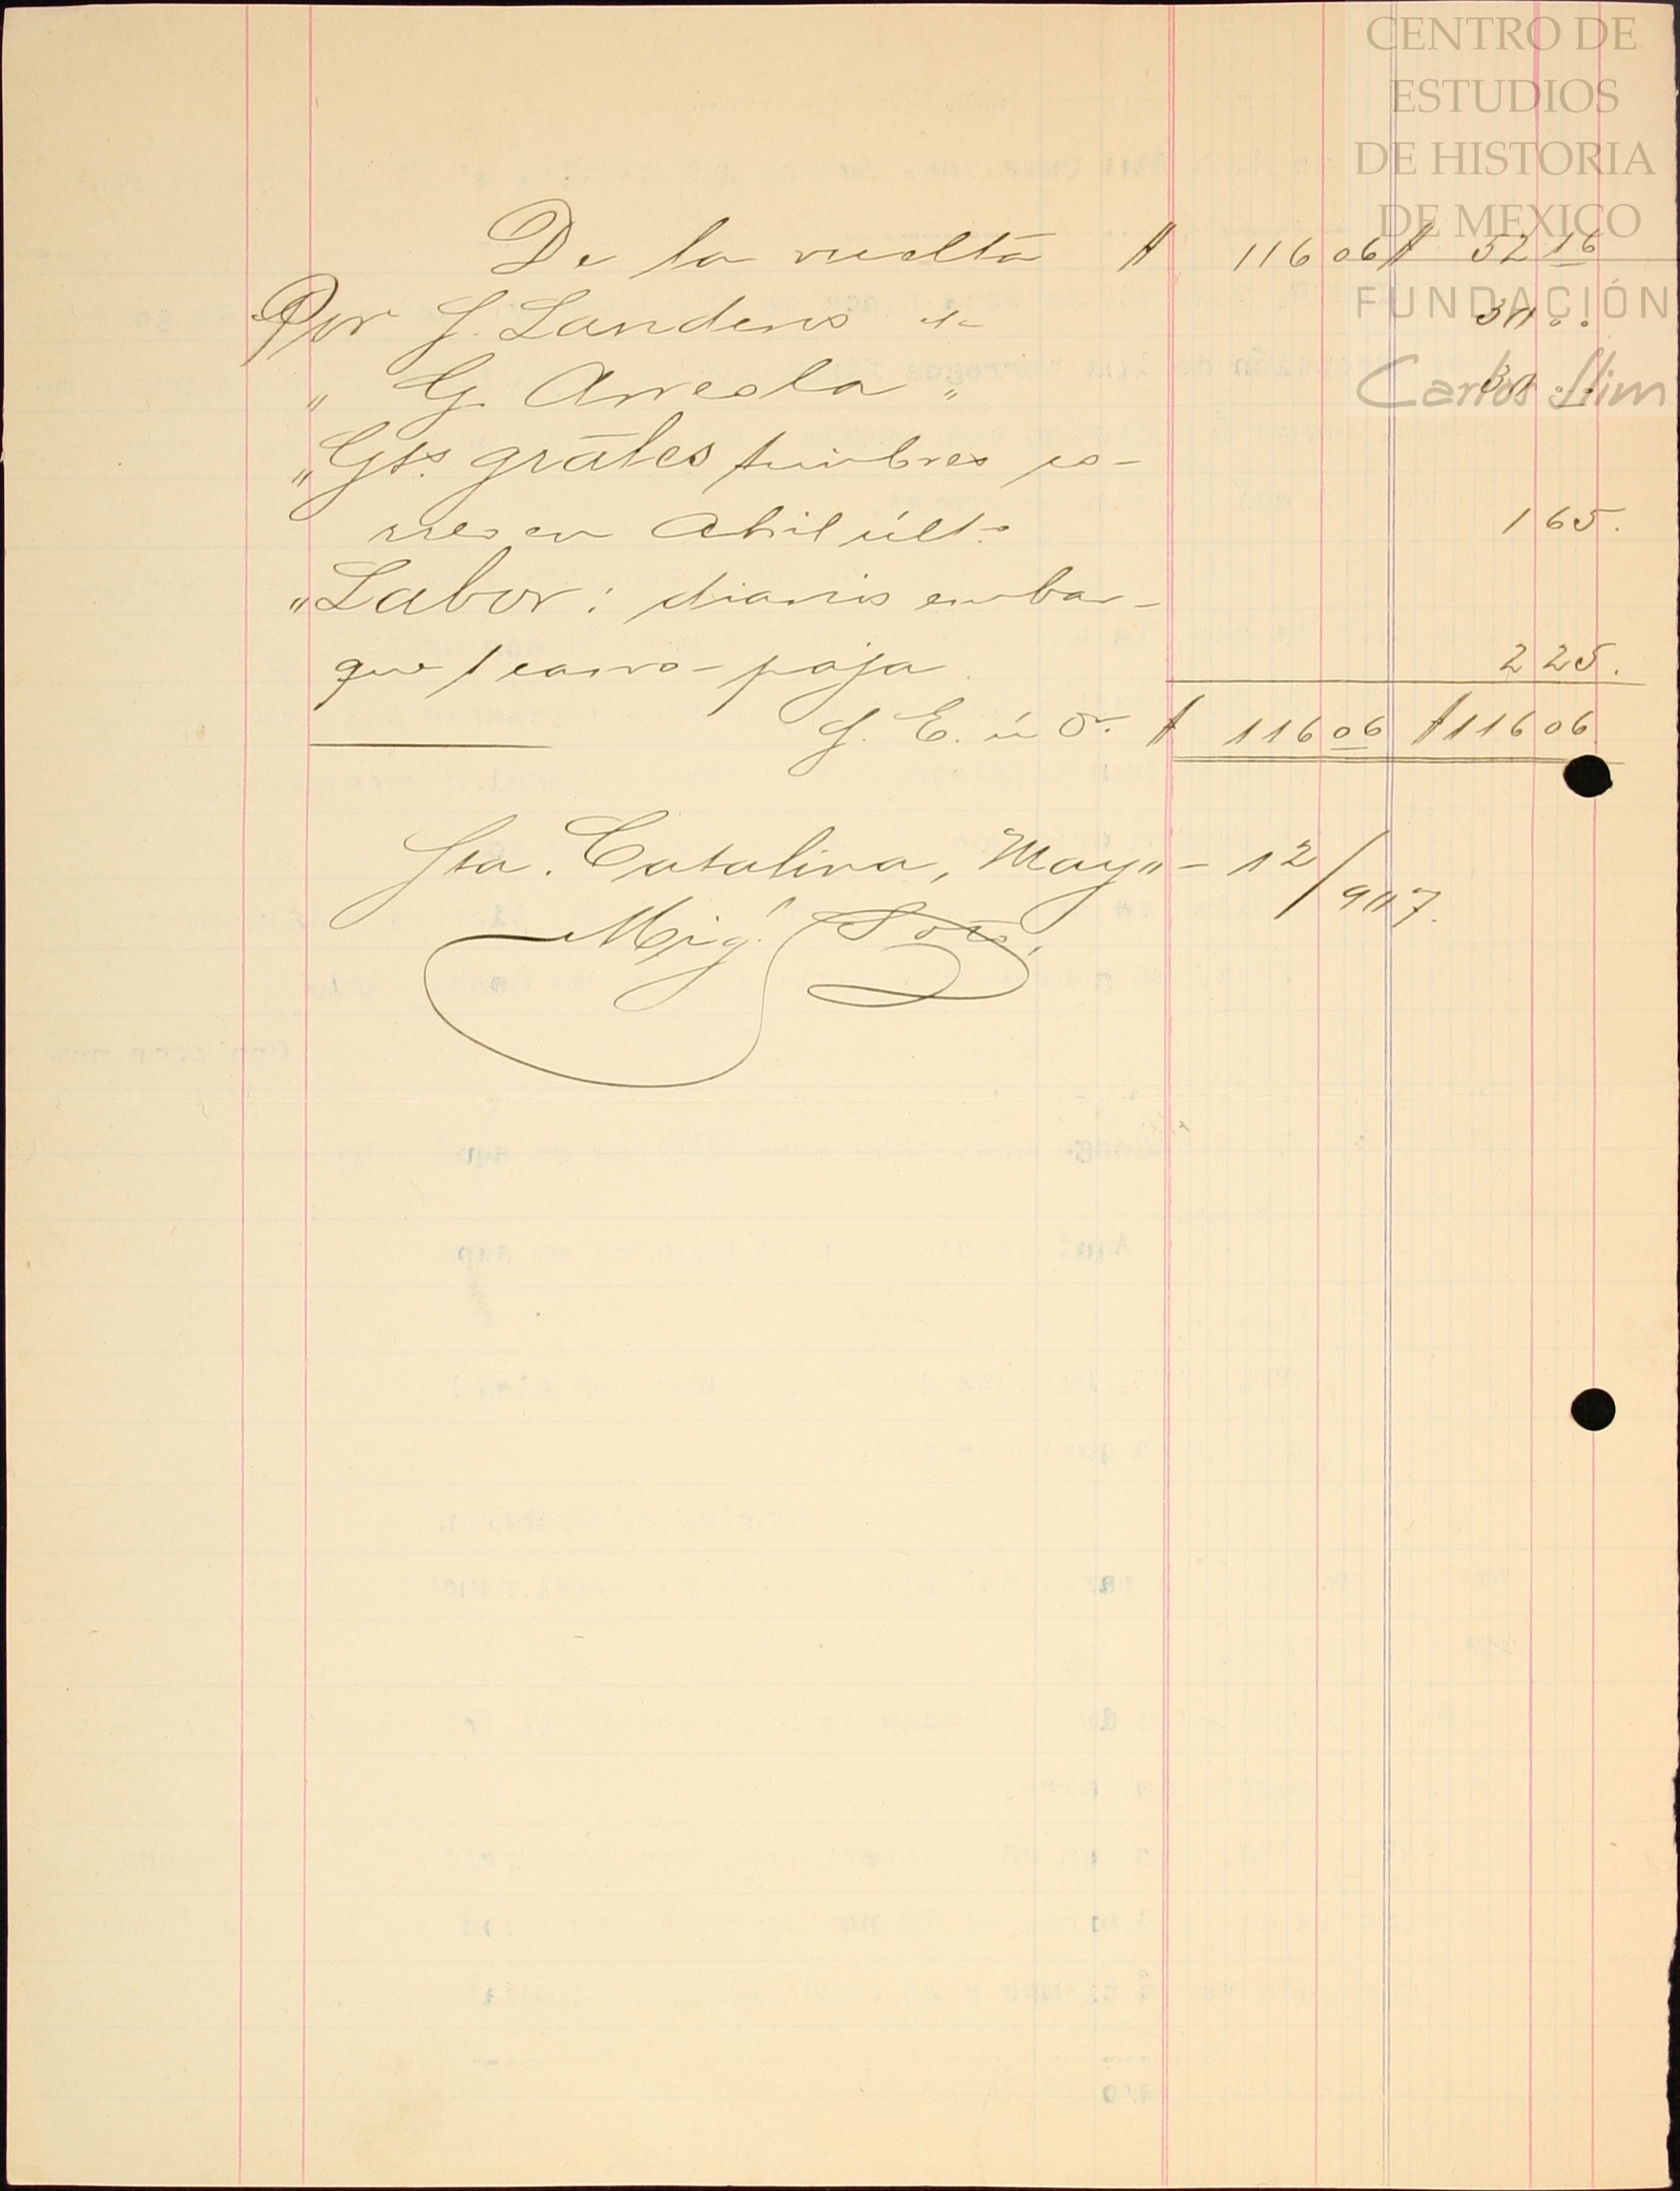 CENTRO DE
ESTUDIOS
DE HISTORIA
DE MEXICO
FUNDACIÓN
Carlos Slim
De la vuelta $ 116 06 $ 52 16
Por J. Landeros id. 30 . .
" G. Arreola " 30 . .
" Gts. gráles timbres co-
rreo en Abril últo. 1 65.
" Labor: diarios embar-
que 1 carro-paja 2 25.
S. E. ú O. $ 116 06 $ 116 06
Sta. Catalina, Mayo - 12/907.
Migl. Soto,